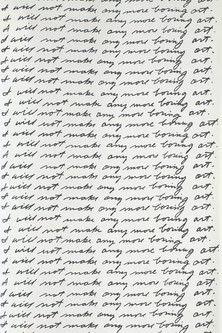 I will not make any more boring art.
I will not make any more boring art.
I will not make any more boring art.
I will not make any more boring art.
I will not make any more boring art.
I will not make any more boring art.
I will not make any more boring art.
I will not make any more boring art.
I will not make any more boring art.
I will not make any more boring art.
I will not make any more boring art.
I will not make any more boring art.
I will not make any more boring art.
I will not make any more boring art.
I will not make any more boring art.
I will not make any more boring art.
I will not make any more boring art.
I will not make any more boring art.
I will not make any more boring art.
I will not make any more boring art.
I will not make any more boring art.
I will not make any more boring art.
I will not make any more boring art.
I will not make any more boring art.
I will not make any more boring art.
I will not make any more boring art.
I will not make any more boring art.